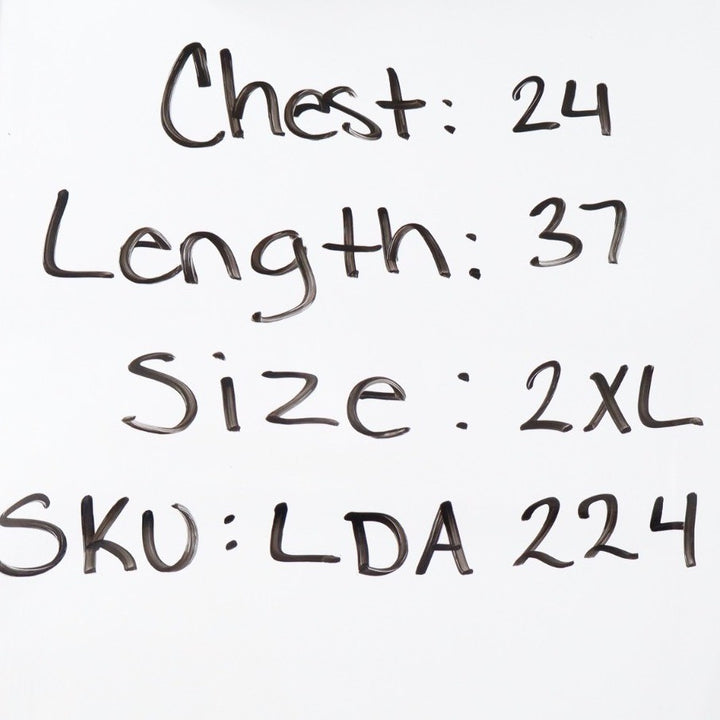 Chest: 24
Length: 37
Size: 2XL
SKU: LDA 224